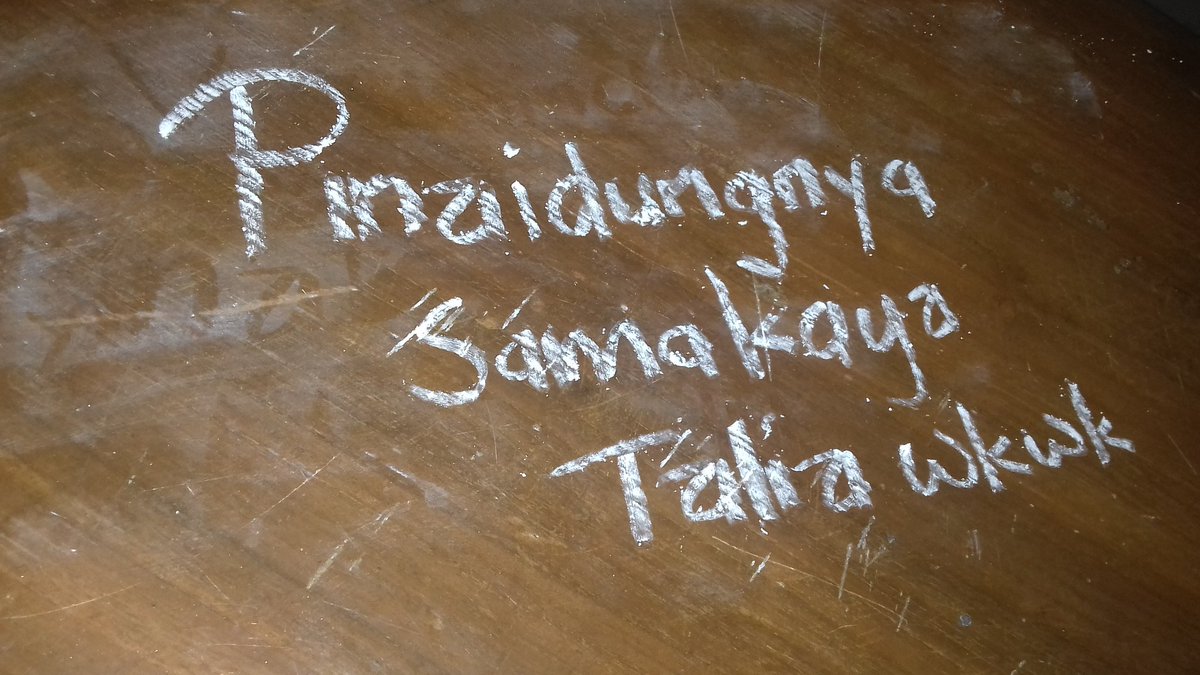 Pinaidungnya
Sama kaya
Talia wkwk